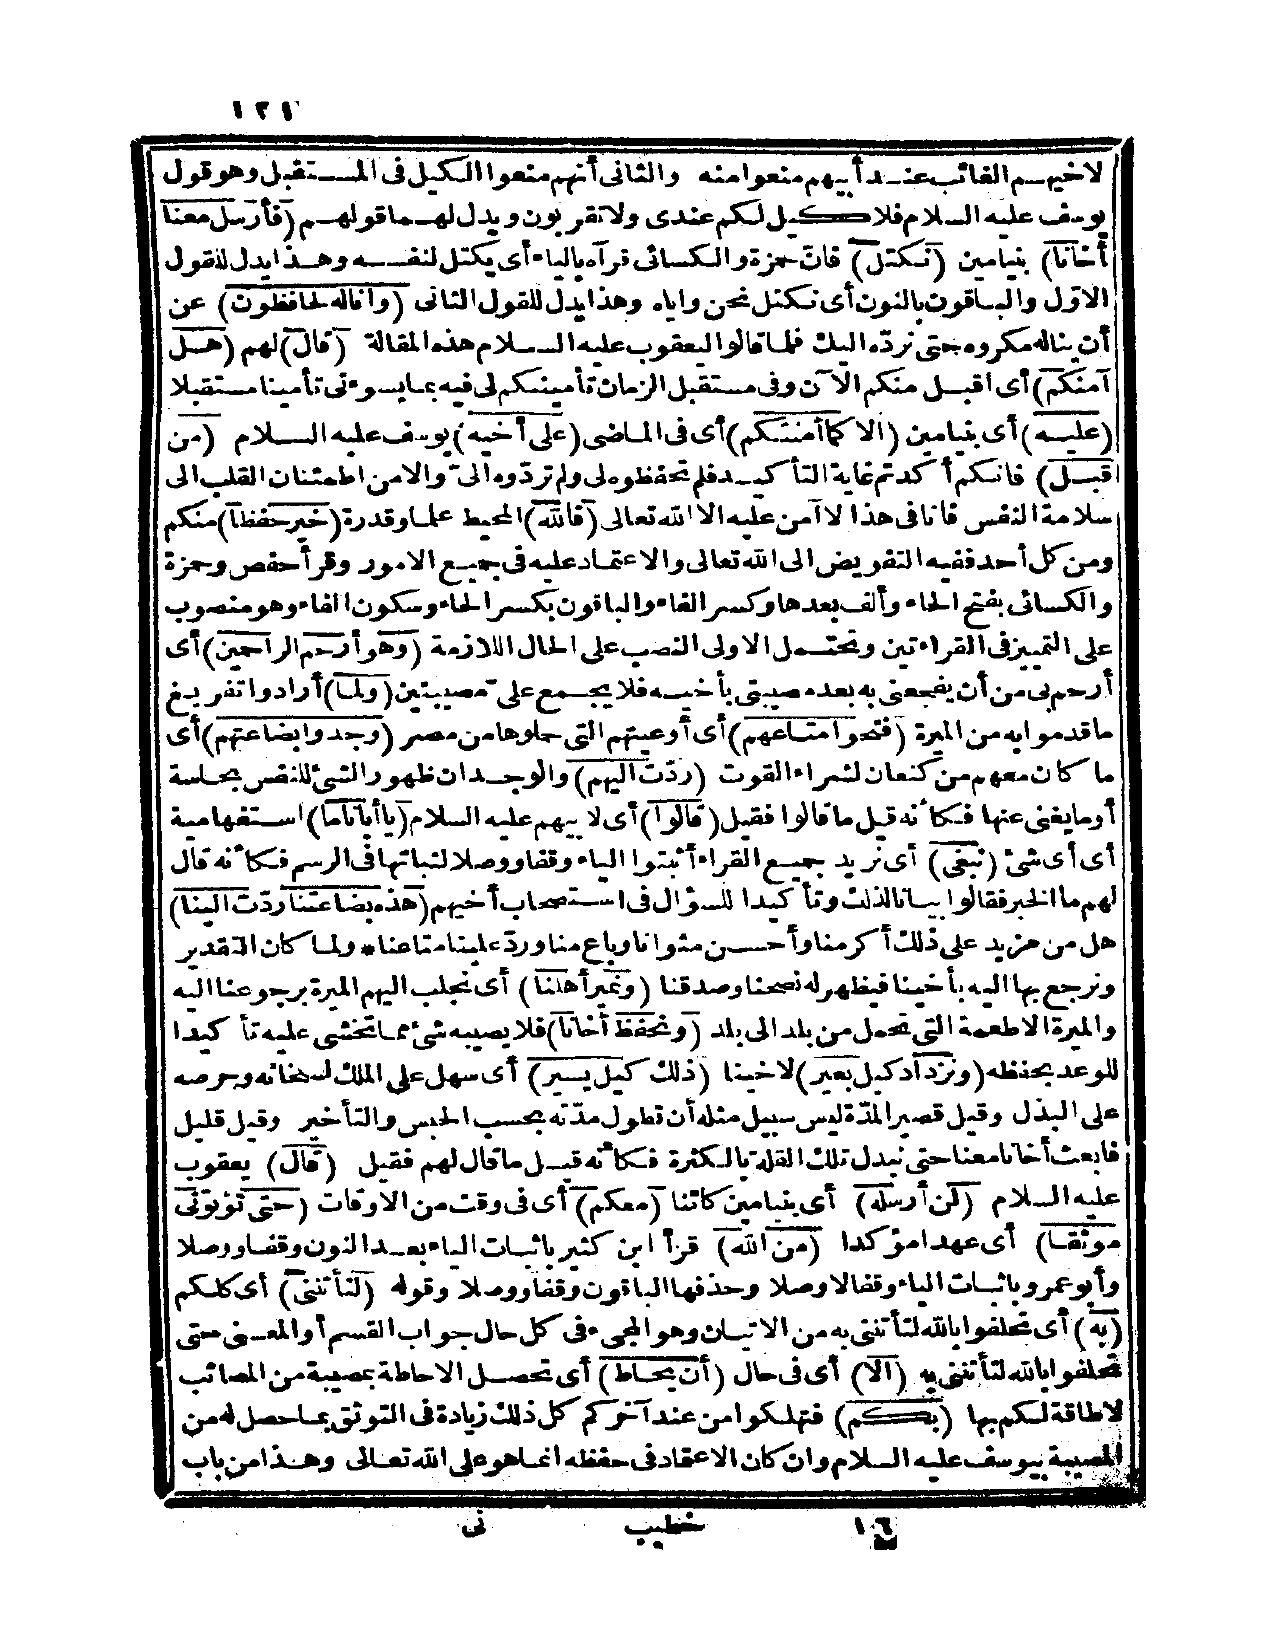 ١٢١
لاخيهم الغائب عند أبيهم منعوا منه والثانى أنهم منعوا الكيل فى المستقبل وهو قول
يوسف عليه السلام فلا كيل لكم عندى ولا تقربون ويدل لهـ ما قولهم (فأرسل معنا
أخانا) بنيامين (نكتل) فانّ حمزة والكسائى قرآه بالياء أى يكتل لنفسه وهذا يدل للقول
الاوّل والباقون بالنون أى نكتل نحن واياه وهذا يدل للقول الثانى (وانا له لحافظون) عن
أن يناله مكروه حتى نردّه اليك فلما قالوا ليعقوب عليه السلام هذه المقالة (قال) لهم (هل
آمنكم) أى اقبل منكم الآن وفى مستقبل الزمان تأمينكم لى فيه مما يسوءنى تأمينا مستقبلا
(عليه) أى بنيامين (الا كما أمنتكم) أى فى الماضى (على أخيه) يوسف عليه السلام (من
قبل) فانكم أكدتم غاية التأكيد فلم تحفظوه لى ولم تردّوه الىّ والامن اطمئنان القلب الى
سلامة النفس فأنا فى هذا لا آمن عليه الا الله تعالى (فالله) المحيط علما وقدرة (خير حفظا) منكم
ومن كل أحد ففيه التفويض الى الله تعالى والاعتماد عليه فى جميع الامور وقرأ حفص وحمزة
والكسائى بفتح الحاء وألف بعدها وكسر الفاء والباقون بكسر الحاء وسكون الفاء وهو منصوب
على التمييز فى القراءتين وتحتمل الاولى النصب على الحال اللازمة (وهو أرحم الراحمين) أى
أرحم بى من أن يفجعنى به بعد مصيبتى بأخيه فلا يجمع علىّ مصيبتين (ولما) أرادوا تفريغ
ما قدموا به من الميرة (فتحوا متاعهم) أى أوعيتهم التى حملوها من مصر (وجدوا بضاعتهم) أى
ما كان معهم من كنعان لشراء القوت (ردّت اليهم) والوجدان ظهور الشئ للنفس بحاسة
أو ما يغنى عنها فكأنه قيل ما قالوا فقيل (قالوا) أى لابيهم عليه السلام (يا أبانا ما) استفهامية
أى أى شئ (نبغى) أى نريد جميع القراء أثبتوا الياء وقفا ووصلا لثباتها فى الرسم فكأنه قال
لهم ما الخبر فقالوا بيانا لذلك وتأكيدا للسؤال فى استصحاب أخيهم (هذه بضاعتنا ردّت الينا)
هل من مزيد على ذلك أكرمنا وأحسن مثوانا وباع منا وردّ علينا متاعنا * ولما كان التقدير
ونرجع بها اليه بأخينا فيظهر له نصحنا وصدقنا (ونمير أهلنا) أى نجلب اليهم الميرة برجوعنا اليه
والميرة الاطعمة التى تحمل من بلد الى بلد (ونحفظ أخانا) فلا يصيبه شئ مما تخشى عليه تأكيدا
للوعد بحفظه (ونزداد كيل بعير) لاخينا (ذلك كيل يسير) أى سهل على الملك لسخائه وحرصه
على البذل وقيل قصير المدّة ليس سبيل مثله أن تطول مدّته بحسب الحبس والتأخير وقيل قليل
فابعث أخانا معنا حتى نبدل تلك القلة بالكثرة فكأنه قيل ما قال لهم فقيل (قال) يعقوب
عليه السلام (لن أرسله) أى بنيامين كائنا (معكم) أى فى وقت من الاوقات (حتى تؤتونى
موثقا) أى عهدا مؤكدا (من الله) قرأ ابن كثير باثبات الياء بعد النون وقفا ووصلا
وأبو عمرو باثبات الياء وقفا لا وصلا وحذفها الباقون وقفا ووصلا وقوله (لتأتننى) أى كلكم
(به) أى تحلفوا بالله لتأتننى به من الاتيان وهو المجىء فى كل حال جواب القسم أو المعنى حتى
تحلفوا بالله لتأتننى به (الا) أى فى حال (أن يحاط) أى تحصل الاحاطة بمصيبة من المصائب
لا طاقة لكم بها (بكم) فتهلكوا من عند آخركم كل ذلك زيادة فى التوثق بما حصل له من
المصيبة بيوسف عليه السلام وان كان الاعتقاد فى حفظه انما هو على الله تعالى وهذا من باب
١٦ خطيب نى